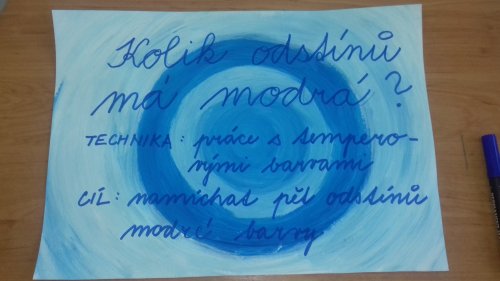 Kolik odstínů
má modrá?
TECHNIKA: práce s tempero-
vými barvami
CÍL: namíchat pět odstínů
modré barvy